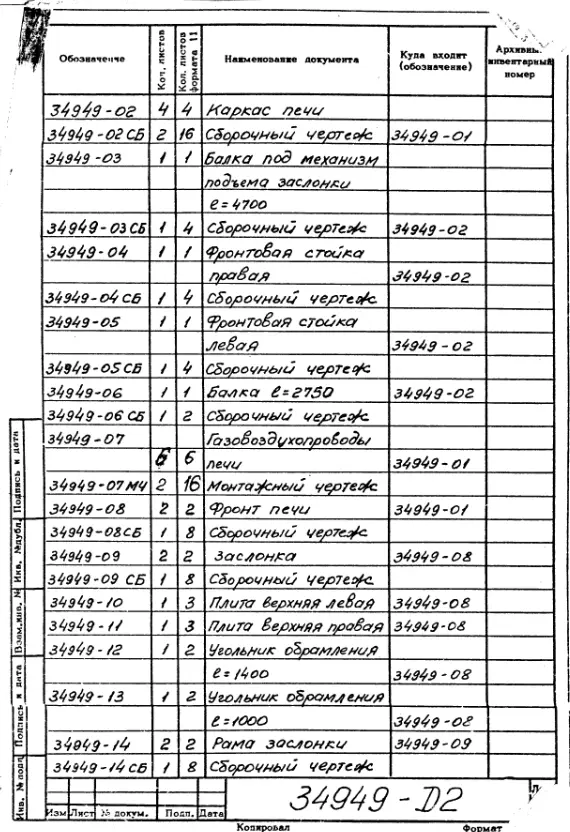 Обозначение Кол. листов Кол. листов формата 11 Наименование документа Куда входит (обозначение) Архивный инвентарный номер
34949-02 4 4 Каркас печи
34949-02СБ 2 16 Сборочный чертеж 34949-01
34949-03 1 1 Балка под механизм
подъема заслонки
ℓ=4700
34949-03СБ 1 4 Сборочный чертеж 34949-02
34949-04 1 1 Фронтовая стойка
правая 34949-02
34949-04СБ 1 4 Сборочный чертеж
34949-05 1 1 Фронтовая стойка
левая 34949-02
34949-05СБ 1 4 Сборочный чертеж
34949-06 1 1 Балка ℓ=2750 34949-02
34949-06СБ 1 2 Сборочный чертеж
34949-07 Газовоздухопроводы
6 6 печи 34949-01
34949-07МЧ 2 16 Монтажный чертеж
34949-08 2 2 Фронт печи 34949-01
34949-08СБ 1 8 Сборочный чертеж
34949-09 2 2 Заслонка 34949-08
34949-09 СБ 1 8 Сборочный чертеж
34949-10 1 3 Плита верхняя левая 34949-08
34949-11 1 3 Плита верхняя правая 34949-08
34949-12 1 2 Угольник обрамления
ℓ=1400 34949-08
34949-13 1 2 Угольник обрамления
ℓ=1000 34949-08
34949-14 2 2 Рама заслонки 34949-09
34949-14СБ 1 8 Сборочный чертеж
Подпись и дата
Инв. №дубл.
Взам.инв. №
Подпись и дата
Инв. № подл.
Изм Лист № докум. Подп. Дата
34949-D2
Копировал Формат